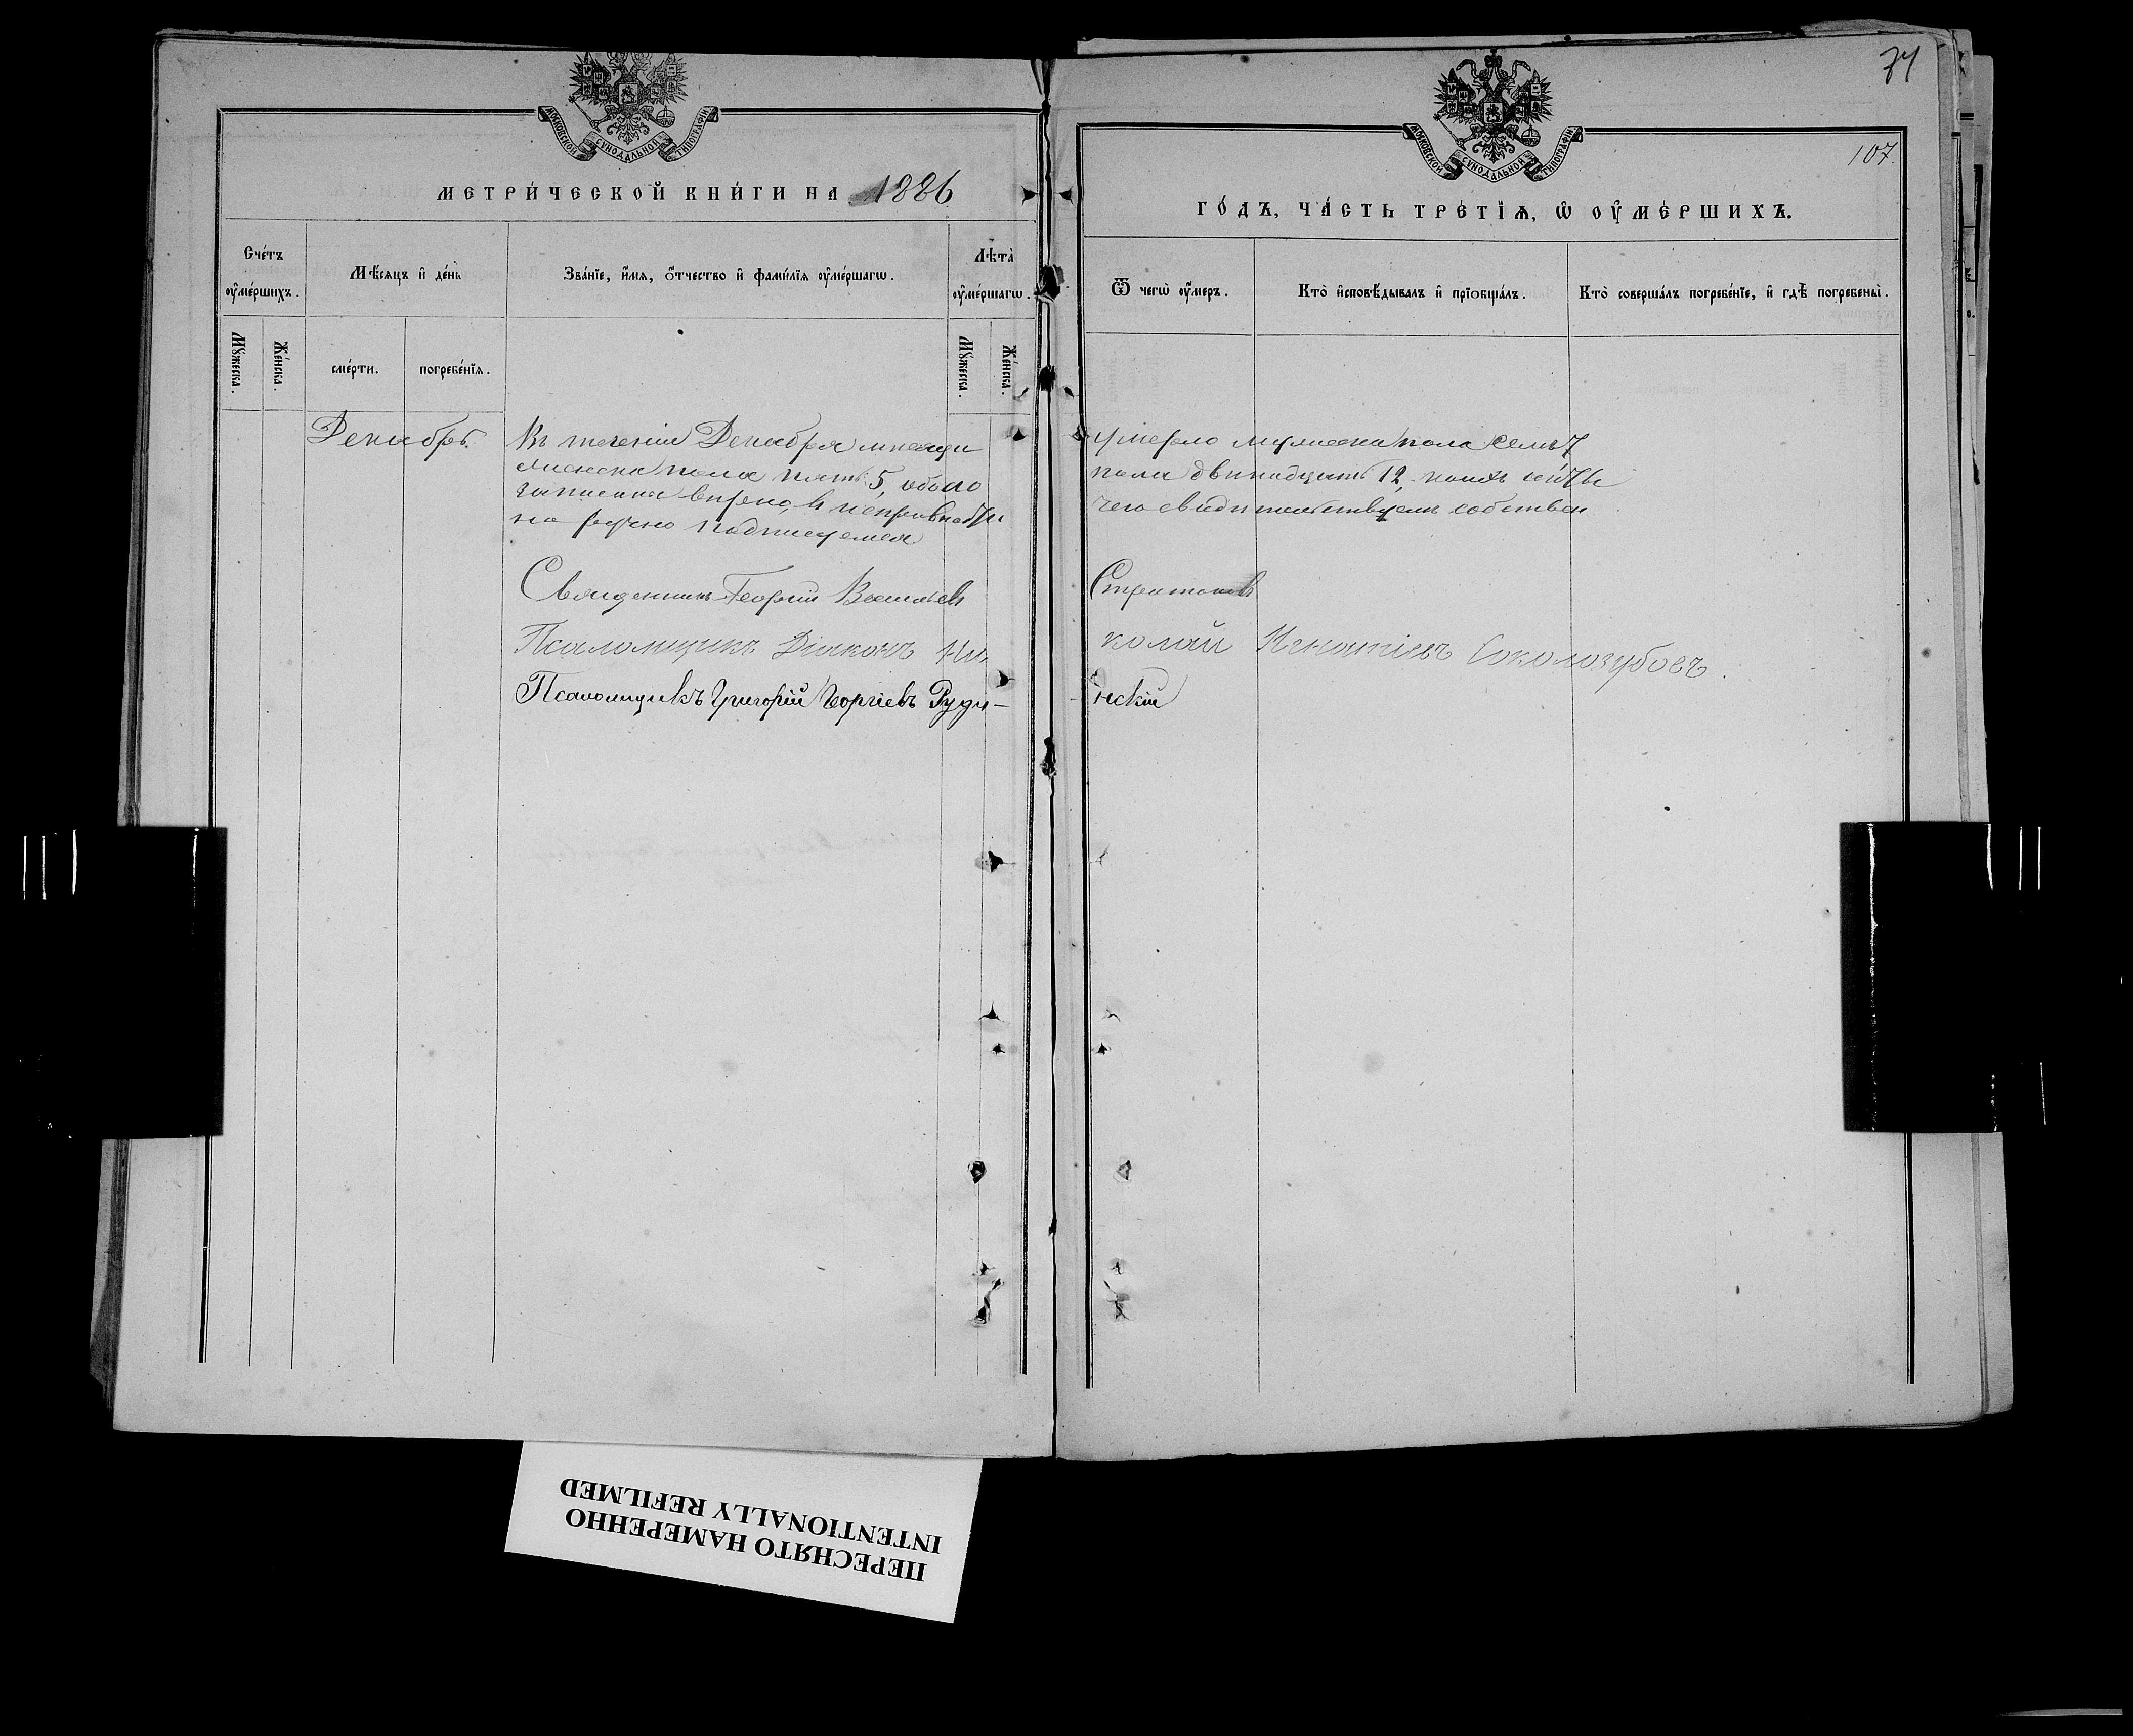 МОСКОВСКОЙ СУНОДАЛЬНОЙ ТИПОГРАФІИ
МЕТРИ́ЧЕСКОЙ КНИ́ГИ НА 1886
Счéтъ ѹ҆мéршихъ.
Мѣ́сяцъ и҆ дéнь
Звáнїе, и҆́мя, ѻ҆́тчество и҆ фамѝлїя ѹ҆мéршагѡ.
Лѣтà ѹ҆мéршагѡ.
Мꙋ́жеска.
Жéнска.
смéрти.
погребéнїя.
Мꙋ́жеска.
Жéнска.
Декабрь.
Въ теченіи Декабря месяца
женска пола пять 5, обоего
записаны верно, в исправности
но ручно подписуемся
Священникъ Георгій Васильев
Псаломщикъ Діаконъ Ни-
Псаломщикъ Григорій Георгіевъ Руди-
71
107.
МОСКОВСКОЙ СУНОДАЛЬНОЙ ТИПОГРАФІИ
ГÓДЪ, ЧÁСТЬ ТРÉТЇЯ, Ѡ҆ ѸМÉРШИХЪ.
Ѿ чегѡ̀ ѹ҆́меръ.
Ктò и҆сповѣ́дывалъ и҆ прїобщáлъ.
Ктò совершáлъ погребéнїе, и҆ гдѣ̀ погребены̀.
умерло мужеска пола семь 7
пола двенадцать 12,
чего свидетельствуем собствен
Стратонов
колай Игнатіевъ Соколозубовъ.
нскій
ПЕРЕСНЯТО НАМЕРЕННО
INTENTIONALLY REFILMED